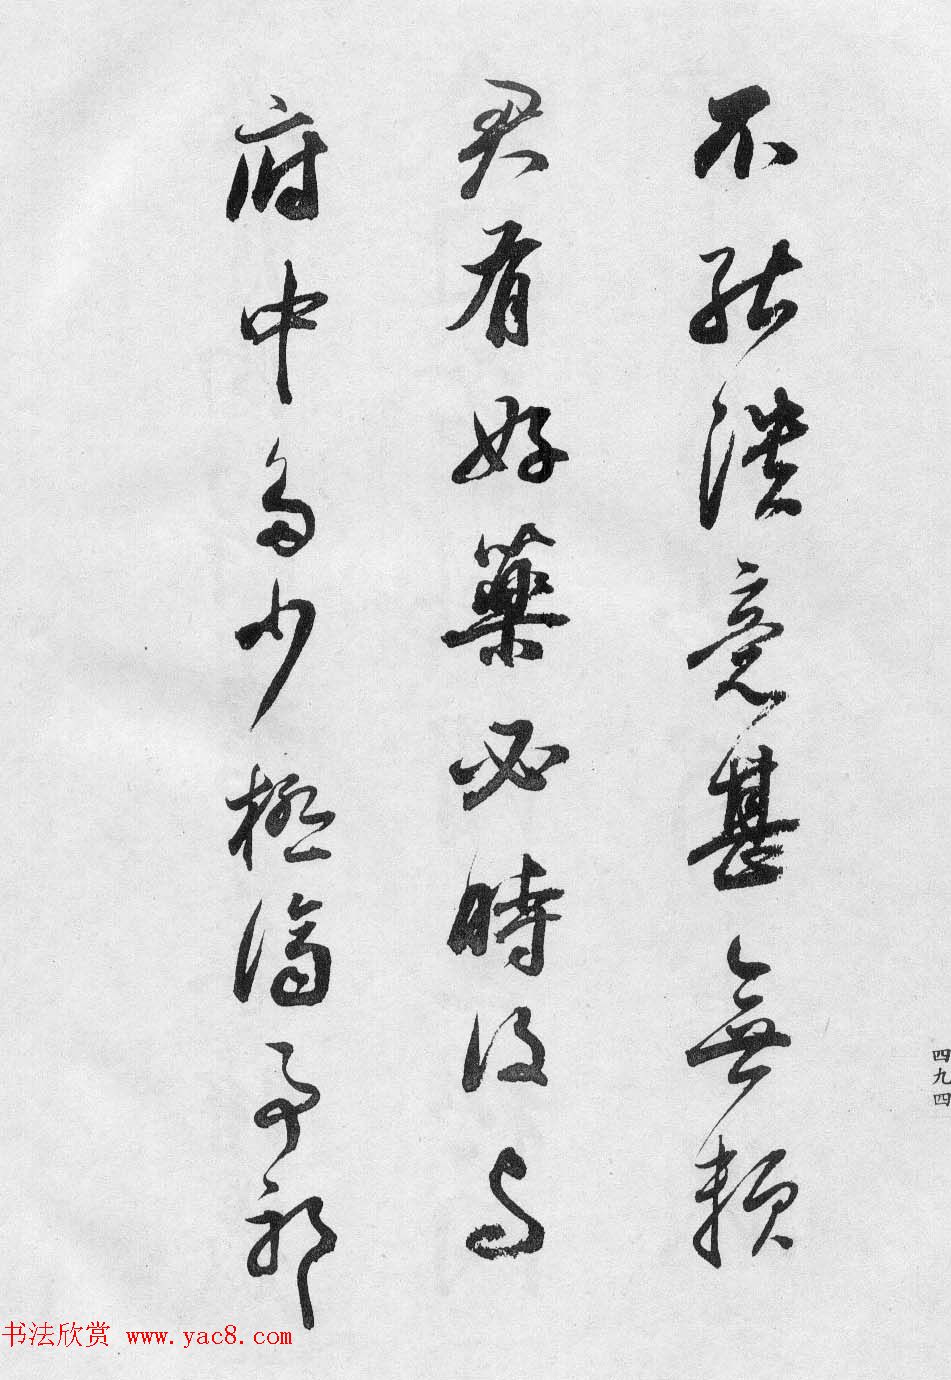 不能溃竟甚無賴
君有好藥必時得与
府中多少極濟事耶
四九四
书法欣赏 www.yac8.com